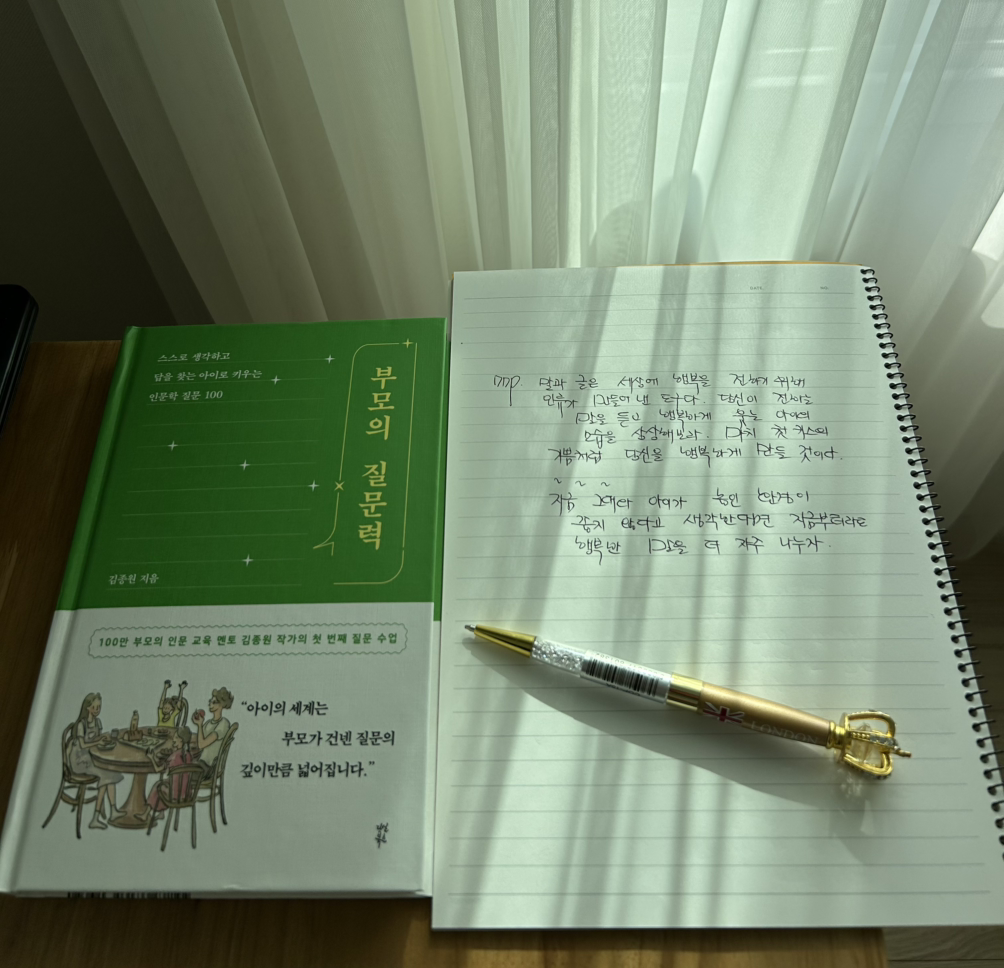 스스로 생각하고
답을 찾는 아이로 키우는
인문학 질문 100
부모의 질문력
김종원 지음
100만 부모의 인문 교육 멘토 김종원 작가의 첫 번째 질문 수업
“아이의 세계는
부모가 건넨 질문의
깊이만큼 넓어집니다.”
DATE NO.
말과 글은 세상에 행복을 전하기 위해
인류가 만들어 낸 도구다. 당신이 전하는
말을 듣고 행복하게 웃는 아이의
모습을 상상해보라. 마치 첫 키스의
기쁨처럼 당신을 행복하게 만들 것이다.
~ ~ ~
지금 그대와 아이가 놓인 환경이
좋지 않다고 생각한다면 지금부터라도
행복한 말을 더 자주 나누자.